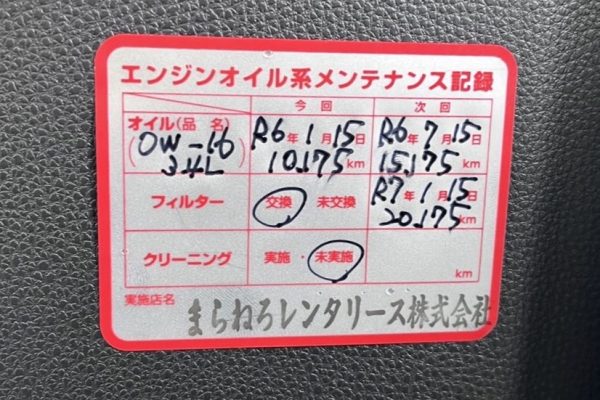 エンジンオイル系メンテナンス記録
今回 次回
オイル(品名) R6年1月15日 R6年7月15日
(0W-16 3.4L) 10,175km 15,175km
フィルター 交換 ・ 未交換 R7年1月15日
20,175km
クリーニング 実施 ・ 未実施 km
実施店名 まらねろレンタリース株式会社